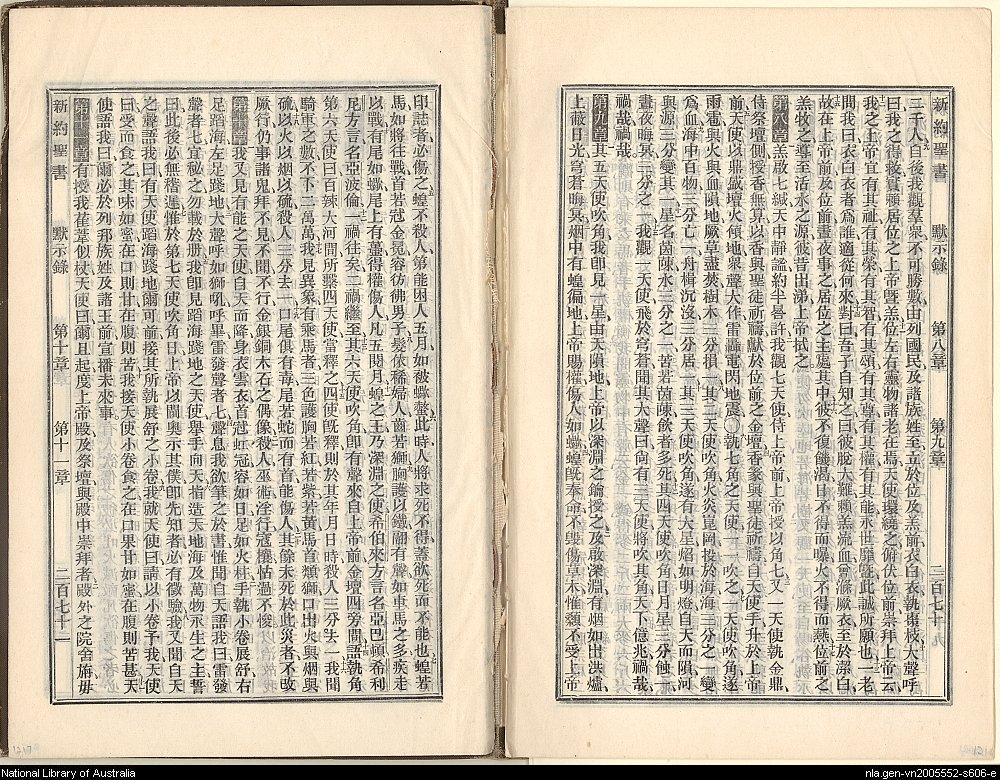 新約聖書 默示錄 第八章 第九章 二百七十
二千人自後我觀羣衆不可勝數由列國民及諸族姓至立於位及羔前衣白衣執枝大聲呼
曰我之得救賴居位之上帝曁羔位左右靈物諸老在焉天使環繞之俯伏位前崇拜上帝云
我之上帝宜有其祉有其榮有其智有其頌有其尊有其權有其能永世靡曁此誠所願也一老
問我曰衣白衣者爲誰適從何來對曰吾子自知之曰彼脫大難賴羔流血曾滌厥衣至於潔白
故在上帝前及位前晝夜事之居位之主處其中彼不復饑渴日不得而曝火不得而爇位前之
羔牧之導至活水之源彼昔出涕上帝拭之
第八章羔啟七緘天中靜謐約半晷許我觀七天使侍上帝前上帝授以角七又一天使執金鼎
侍祭壇側授香無算以香與聖徒祈禱獻於位前之金壇香篆與聖徒祈禱自天使手升於上帝
前天使以鼎盛壇火傾地衆聲大作雷轟電閃地震〇執七角之天使一一吹之一天使吹角遂
雨雹與火與血隕地厥草盡焚樹木三分損一其二天使吹角火炎崑岡投於海海三分之一變
爲血海中百物三分亡一舟楫沉沒三分居一其三天使吹角遂有大星焰如明燈自天而隕河
與源三分變其一星名茵陳水三分之一苦若茵陳飲者多死其四天使吹角日月星三分蝕一
晝夜晦冥三分之一我觀一天使飛於穹蒼聞其大聲曰尚有三天使將吹其角天下億兆禍哉
禍哉禍哉
第九章其五天使吹角我卽見一星由天隕地上帝以深淵之鑰授之及啟深淵有烟如出洪爐
上蔽日光穹蒼晦冥烟中有蝗徧地上帝賜權傷人如蠍蝗旣奉命不毁傷草木惟額不受上帝
印誌者必傷之蝗不殺人第能困人五月如被蠍螫此時人將求死不得蓋欲死而不能也蝗若
馬如將往戰首若冠金冕容彷彿男子髮依稀婦人齒若獅胸護以鐵翤有聲如車馬之多疾走
以戰有尾如蠍尾上有蠆得權傷人凡五閱月蝗之王乃深淵之使希伯來方言名亞巴頓希利
尼方言名亞波倫一禍往矣二禍繼至其六天使吹角卽有聲來自上帝前金壇四旁間語執角
第六天使曰百辣大河間所繫四天使當釋之四使旣釋則於其年月日時殺人三分去一我聞
騎軍之數不下二萬萬我見異象有乘馬者三色護胸若紅若紫若黃馬首類獅口出火與烟與
硫以火以烟以硫殺人三分去一口尾俱有毒尾若蛇而有首能傷人其餘未死於此災者不改
厥行仍事諸鬼拜不見不聞不行金銀銅木石之偶像殺人巫術淫行寇攘怙過不悛
第十章我又見有能之天使自天而降身衣雲衣首冠虹冠容如日足如火柱手執小卷展舒右
足蹈海左足踐地大聲呼如獅吼呼畢雷發聲者七聲息我欲筆之於書惟聞自天語我曰雷發
聲者七宜秘之勿載於册我卽見蹈海踐地之天使舉手向天指造天地海及萬物永生之主誓
曰此後必無稽遲惟於第七天使吹角日上帝以閫奧示其僕卽先知者必有徵驗我又聞自天
之聲語我曰有天使蹈海踐地爾可前接其所執展舒之小卷我就天使曰請以小卷予我天使
曰受而食之其味如蜜在口則甘在腹則苦我接天使小卷食之在口果甘如蜜在腹則苦甚天
使語我曰爾必於列邦族姓及諸王前宣播未來事
第十一章有授我萑葦似杖天使曰爾且起度上帝殿及祭壇與殿中崇拜者殿外之院舍旃毋
新約聖書 默示錄 第十章 第十一章 二百七十一
National Library of Australia
nla.gen-vn2005552-s606-e